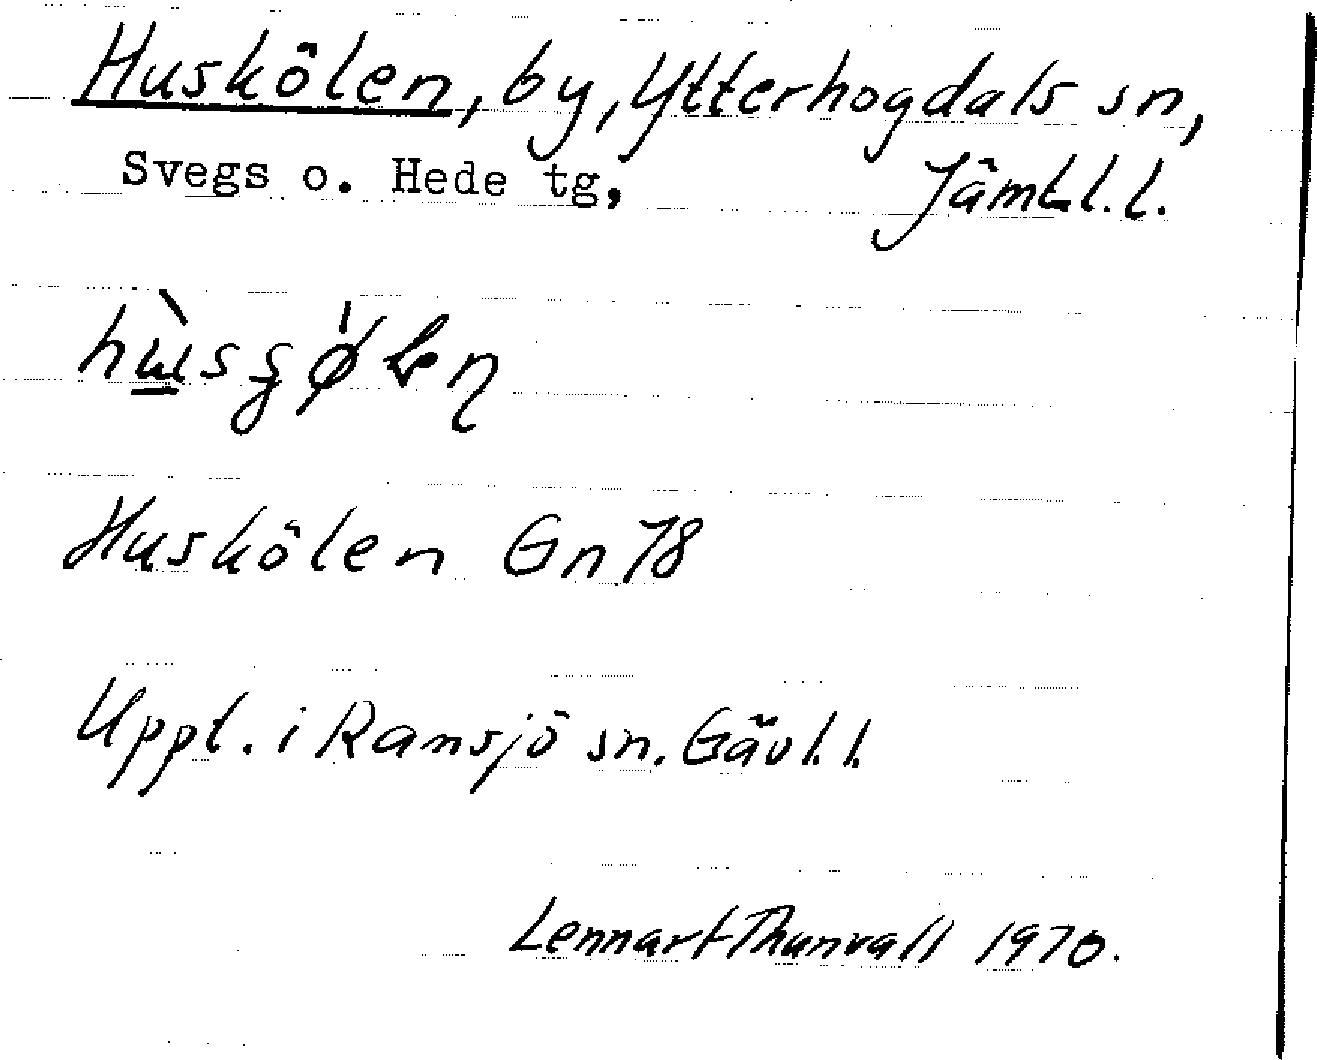 Huskölen, by, Ytterhogdals sn,
Svegs o. Hede tg, Jämtl. l.
Huskölen Gn 78
Uppt. i Ramsjö sn. Gävl. l.
Lennart Thunvall 1970.